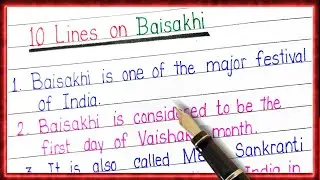 10 Lines on Baisakhi
1. Baisakhi is one of the major festival
of India.
2. Baisakhi is considered to be the
first day of Vaishakh month.
3. It is also called Sankranti
India in